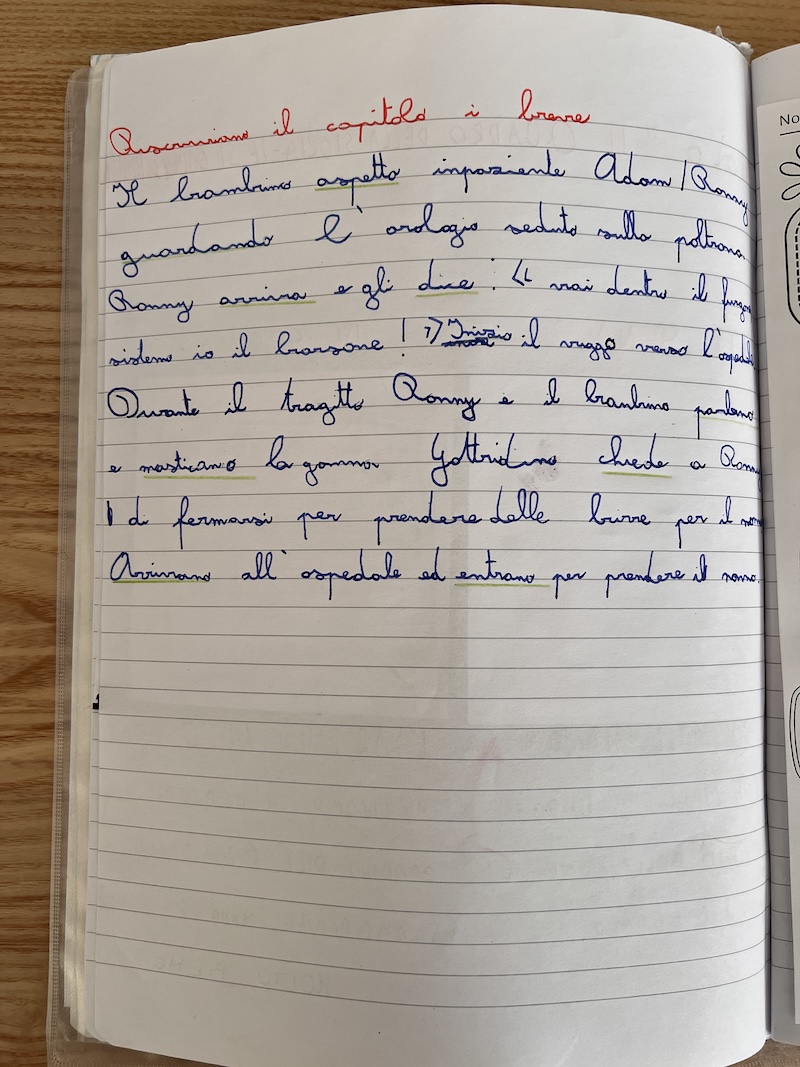 Riscriviamo il capitolo i breve
Il bambino aspetta inpaziente Adam/Ronny
guardando l'orologio seduto sulla poltrona.
Ronny arriva e gli dice: << vai dentro il furgone
sistemo io il borsone! >> Inizio il viaggo verso l'ospedale
Durante il tragitto Ronny e il bambino parlano
e masticano la gomma. Gottridino chiede a Ronny
di fermarsi per prendere delle birre per il nonno
Arrivano all'ospedale ed entrano per prendere il nonno.
No